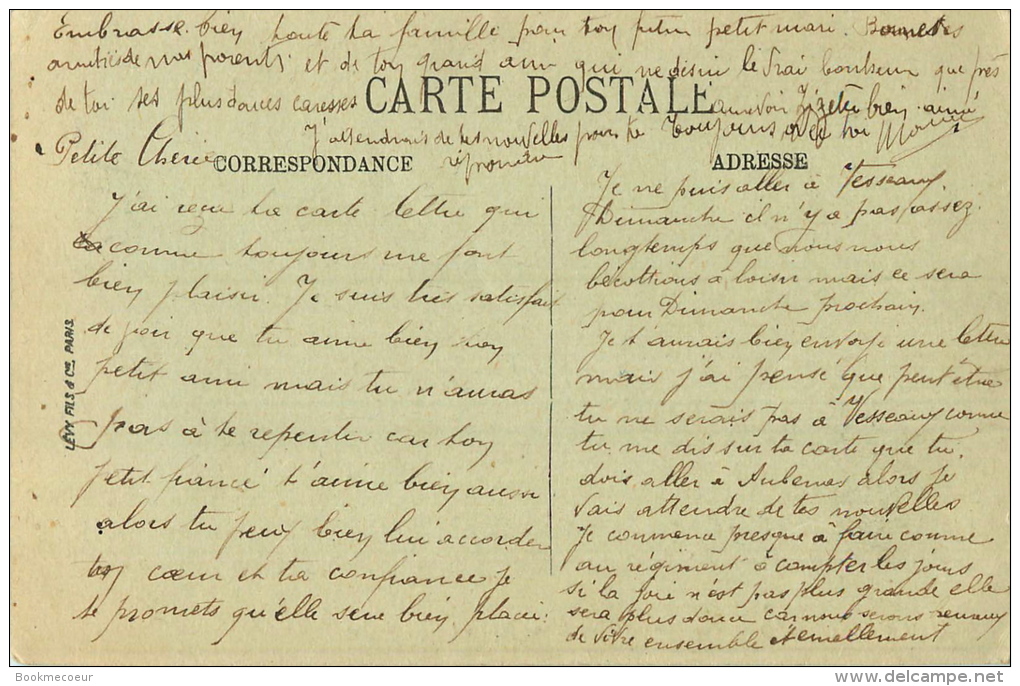 Embrasse bien toute ta famille pour ton futur petit mari. Bonnes
amitiés de nos parents et de ton grand ami qui ne désire le vrai bonheur que près
de toi ses plus douces caresses
CARTE POSTALE
au revoir bien aimé
J'attendrais de tes nouvelles pour te
Toujours avec toi
Petite Cherie
CORRESPONDANCE
ADRESSE
J'ai reçu ta carte lettre qui
comme toujours me font
bien plaisir. Je suis très satisfait
de voir que tu aime bien ton
petit ami mais tu n'auras
pas à te repentir car ton
petit fiancé t'aime bien aussi
alors tu peux bien lui accorder
ton cœur et ta confiance je
te promets qu'elle sera bien placé.
Je ne puis aller à Vesseaux
Dimanche il n'y a pas assez
longtemps que nous nous
becottions à loisir mais ce sera
pour Dimanche prochain.
Je t'aurais bien envoyé une lettre
mais j'ai pensé que peut être
tu ne serais pas à Vesseaux comme
tu me dis sur ta carte que tu
dois aller à Aubenas alors je
vais attendre de tes nouvelles
Je commence presque à faire comme
au régiment à compter les jours
si la joie n'est pas plus grande elle
sera plus douce car nous serons
de vivre ensemble éternellement
LÉVY FILS & Cie PARIS.
Bookmecoeur
delcampe.net